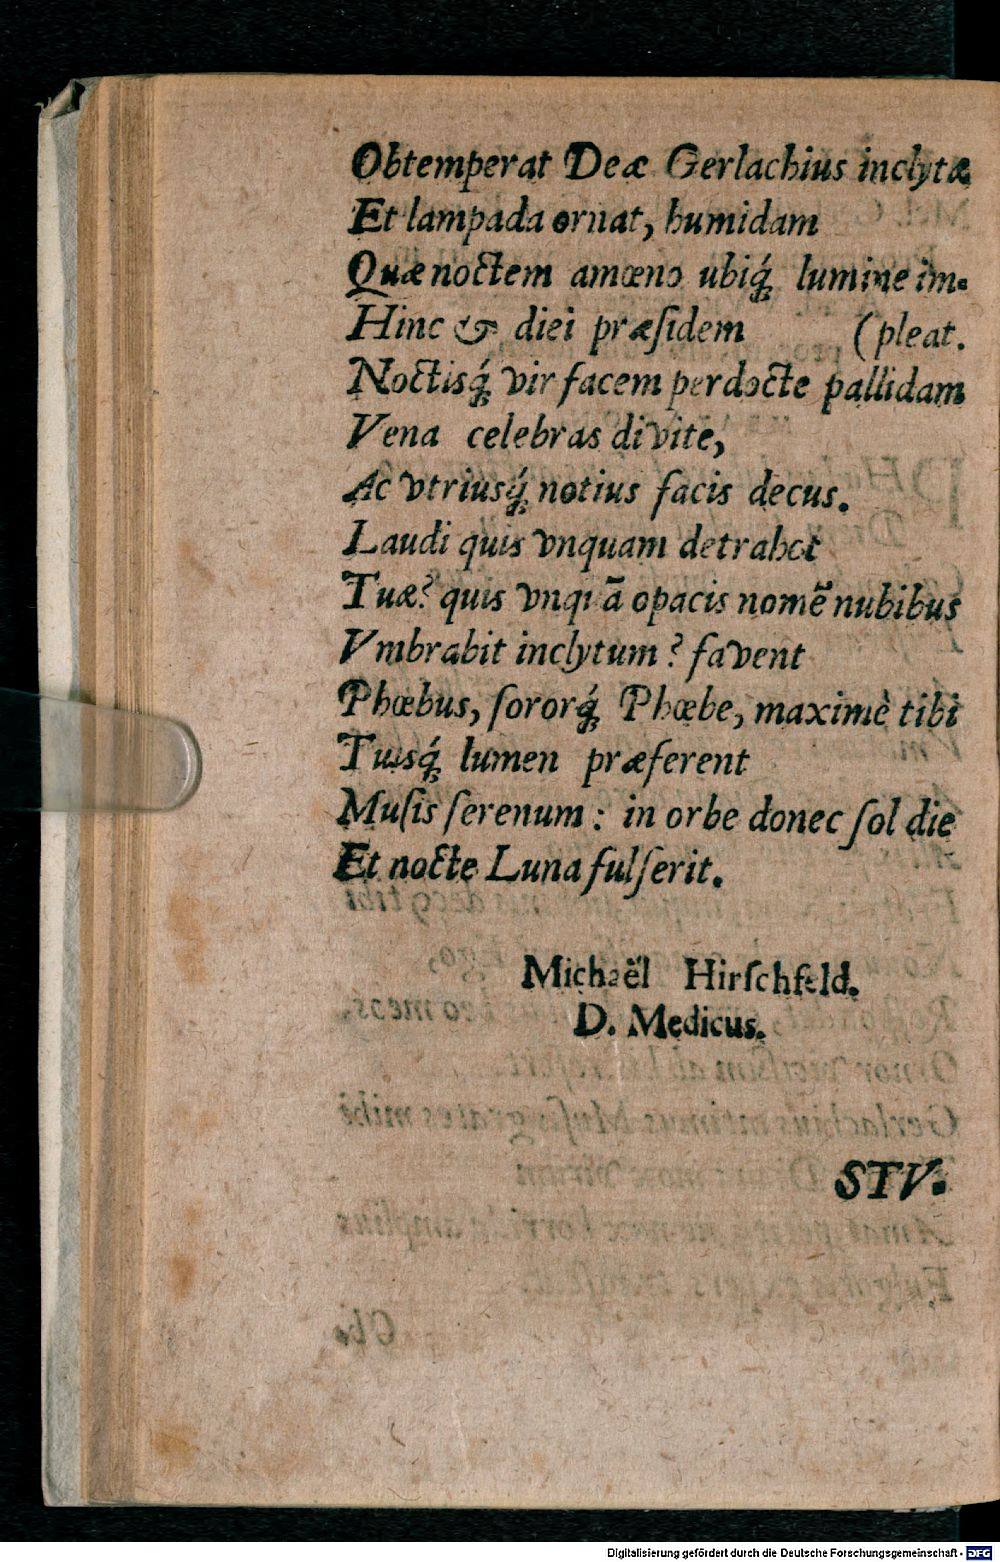 Obtemperat Deæ Gerlachius inclytæ
Et lampada ornat, humidam
Quæ noctem amœno ubiq́; lumine im-
Hinc & diei præſidem (pleat.
Noctisq́; vir facem perdocte pallidam
Vena celebras divite,
Ac vtriusq́; notius facis decus.
Laudi quis vnquam detrahet
Tuæ? quis vnquã opacis nomẽ nubibus
Vmbrabit inclytum? favent
Phœbus, ſororq́; Phœbe, maximè tibi
Tuisq́; lumen præferent
Muſis ſerenum: in orbe donec ſol die
Et nocte Luna fulſerit.
Michaël Hirſchfeld.
D. Medicus.
STV.
Digitalisierung gefördert durch die Deutsche Forschungsgemeinschaft - DFG